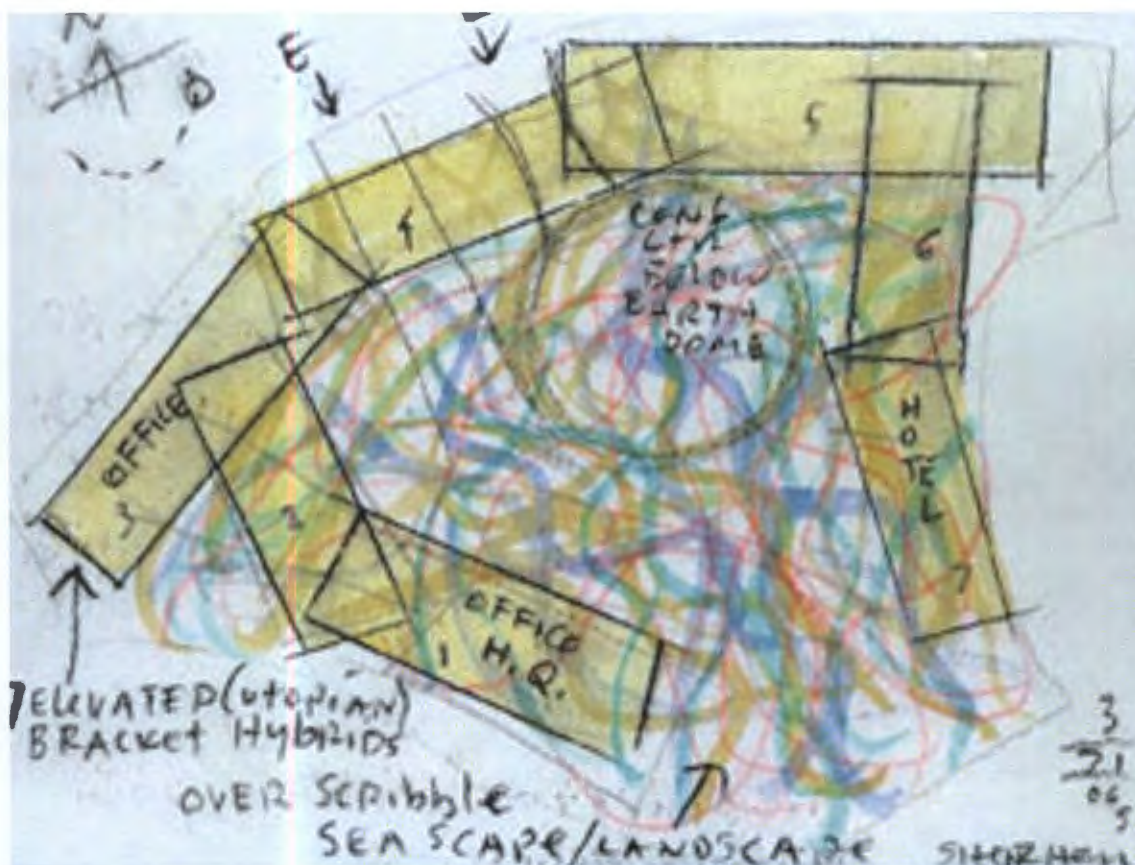 N
E
5
4
CONF
CTR
BELOW
EARTH
DOME
6
OFFICE
3
HOTEL
7
2
OFFICE
H.Q.
1
ELEVATED (UTOPIAN)
BRACKET HYBRIDS
OVER SCRIBBLE
SEA SCAPE/LANDSCAPE
3
21
06